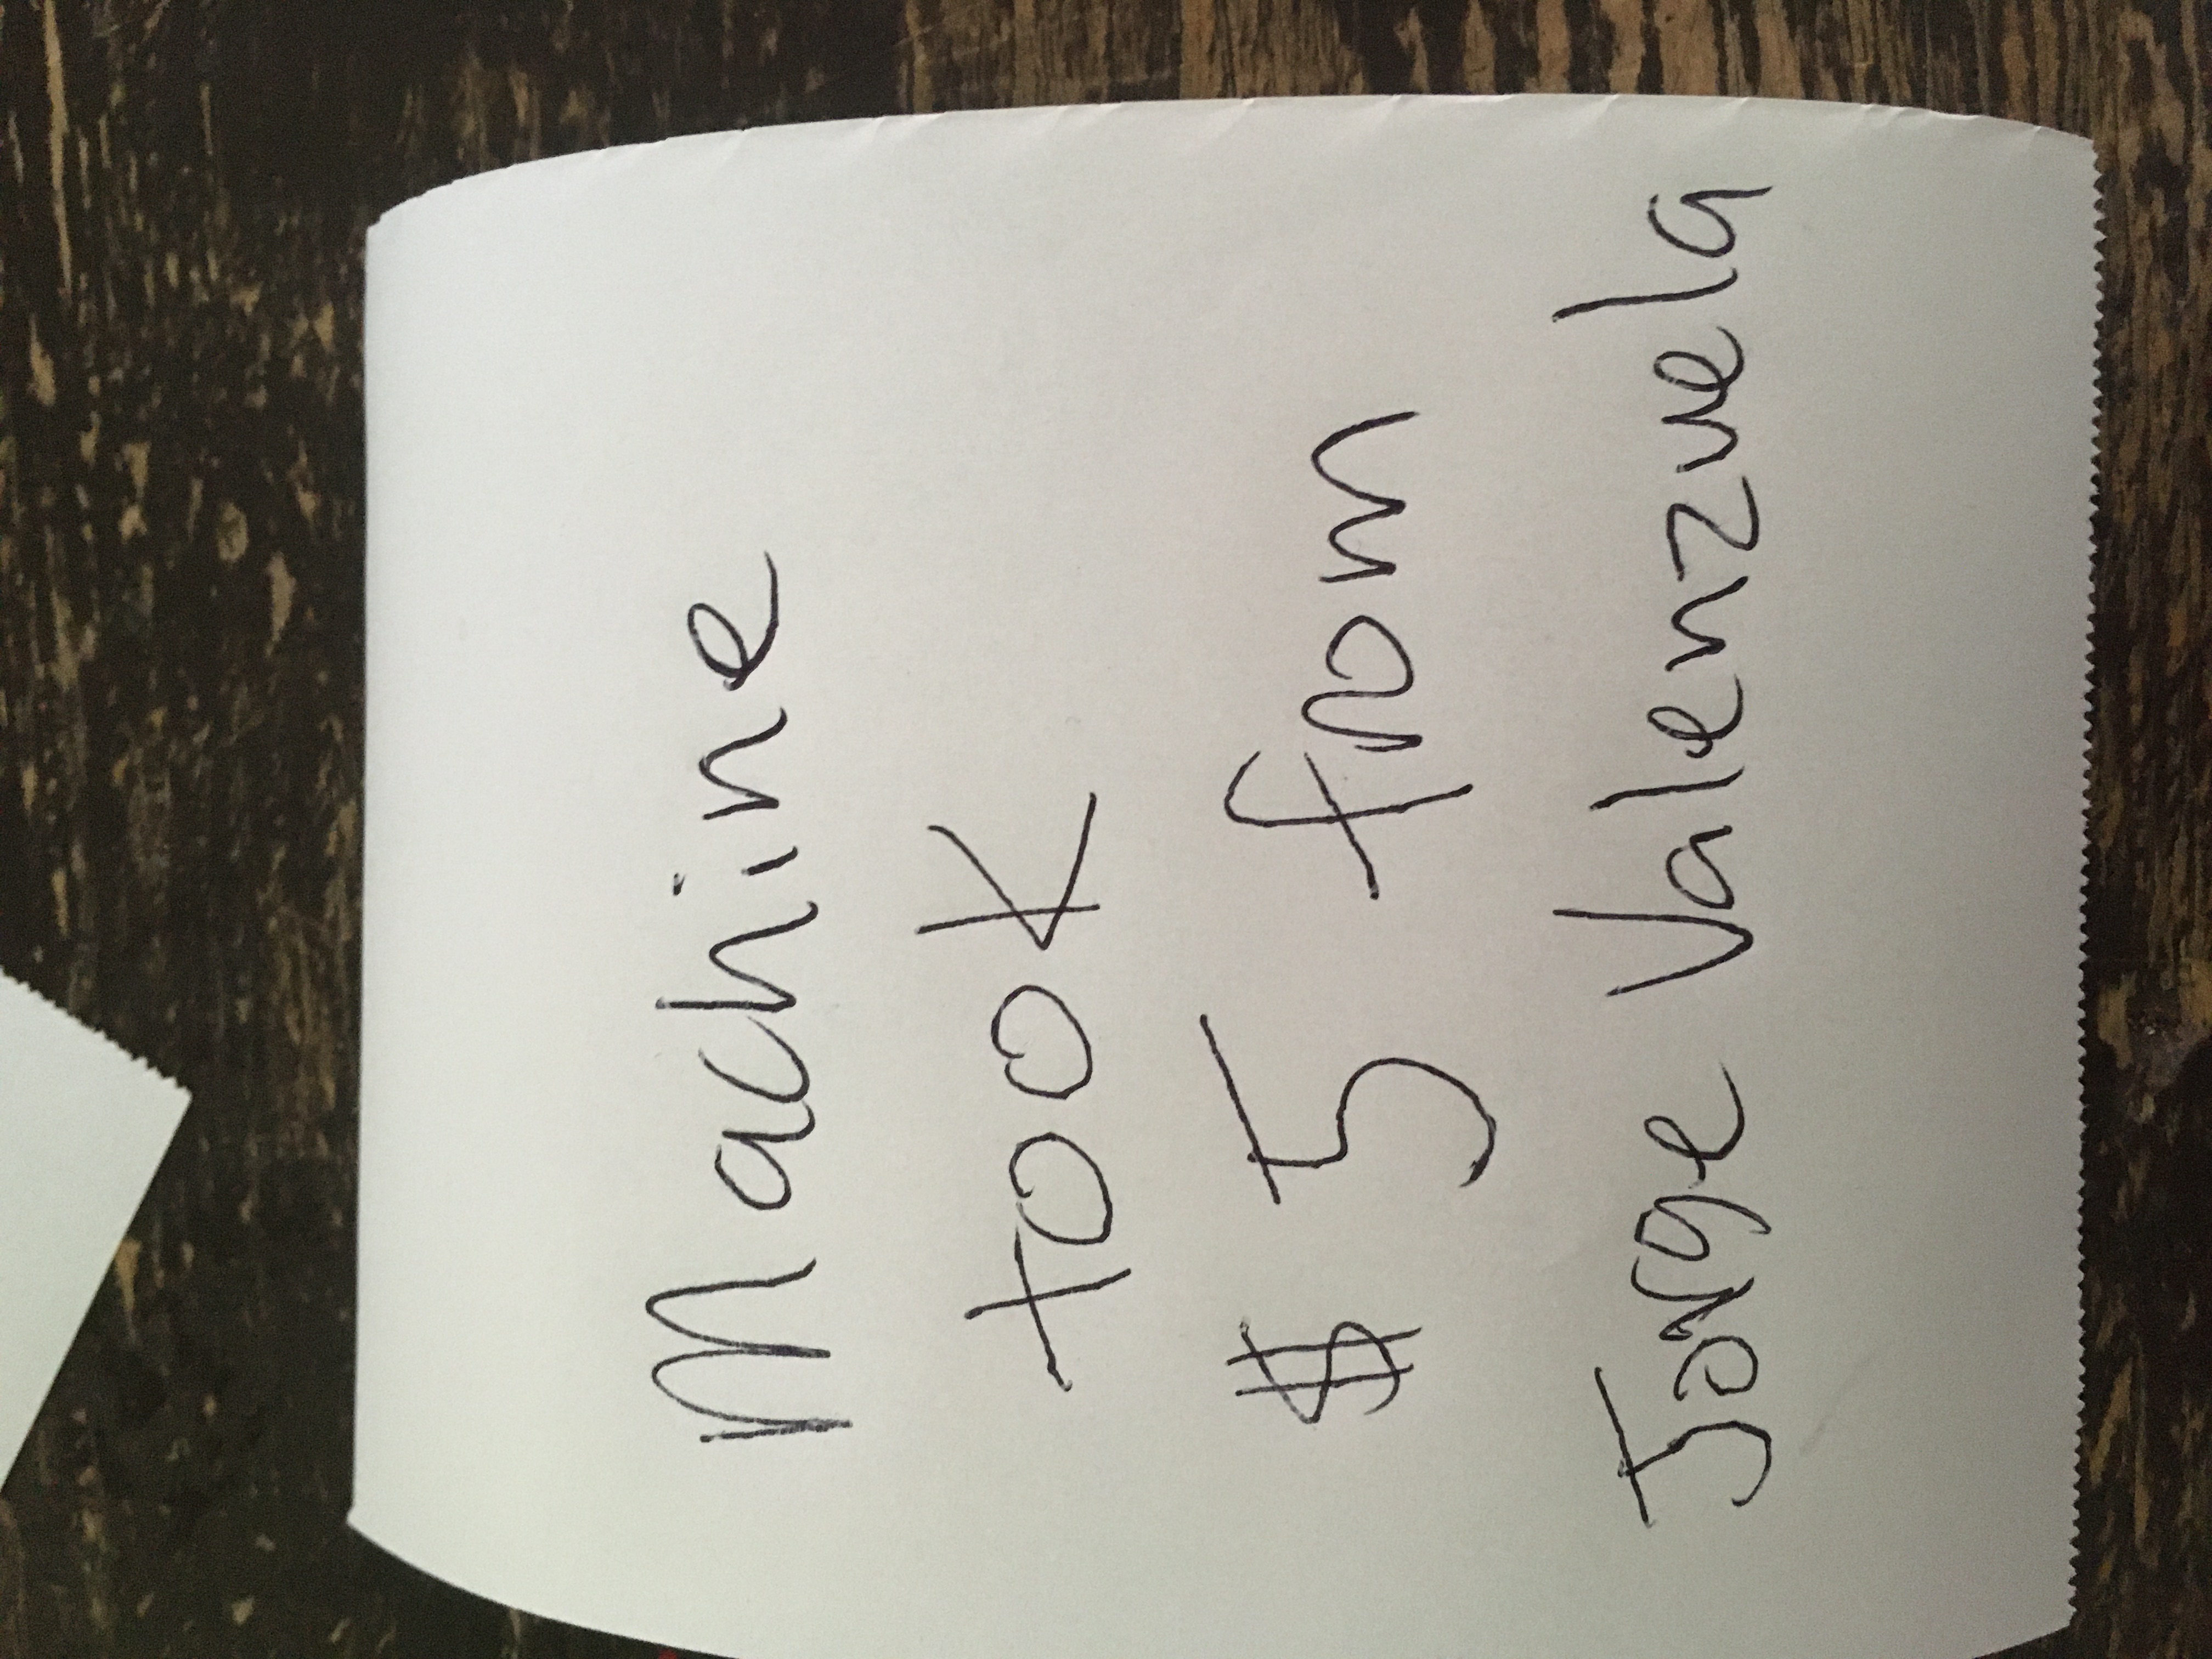 Machine
took
$ 5 from
Jorge Valenzuela